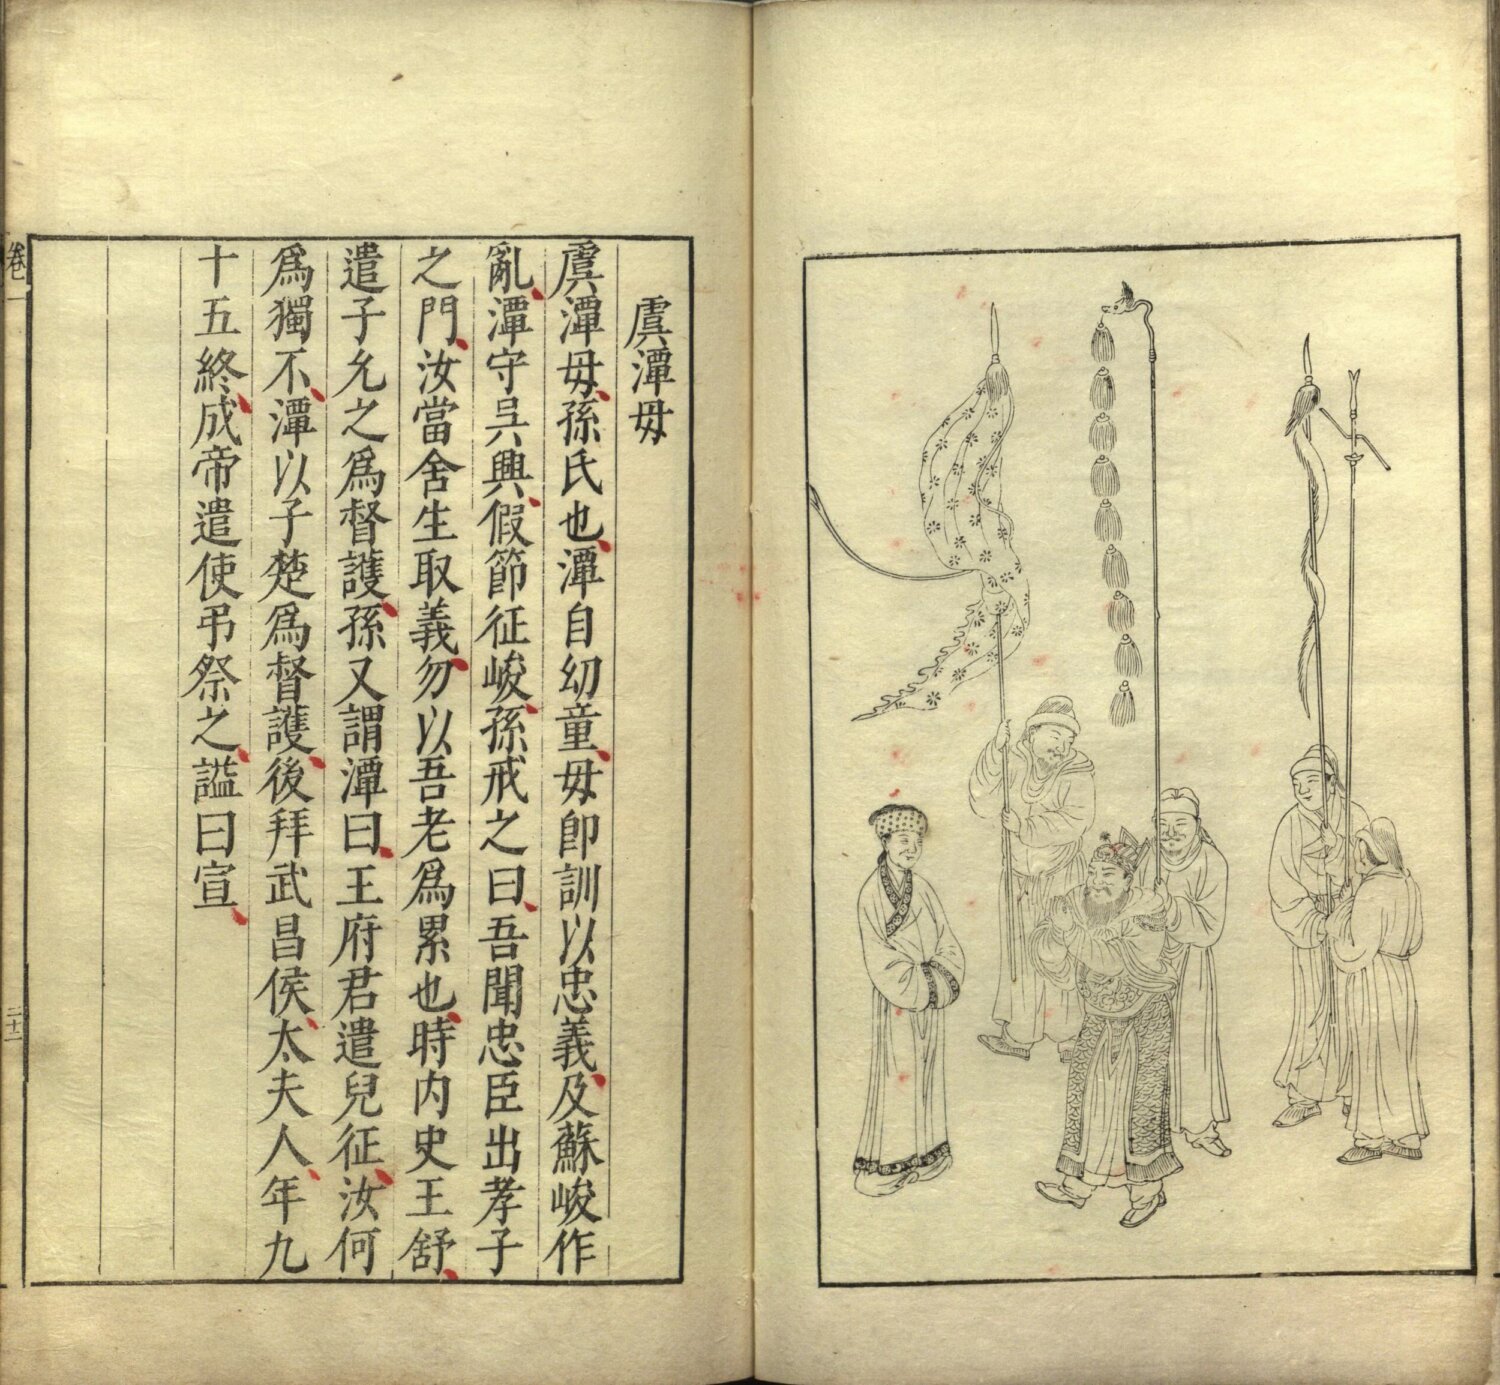 虞潭母
虞潭母孫氏也潭自幼童母即訓以忠義及蘇峻作
亂潭守吳興假節征峻孫戒之曰吾聞忠臣出孝子
之門汝當舍生取義勿以吾老爲累也時内史王舒
遣子允之爲督護孫又謂潭曰王府君遣兒征汝何
爲獨不潭以子楚爲督護後拜武昌侯太夫人年九
十五終成帝遣使弔祭之謚曰宣
卷一
二十二